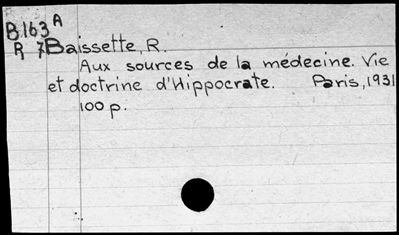 B.163 A
R 7 Baissette, R.
Aux sources de la médecine. Vie
et doctrine d'Hippocrate. Paris, 1931
100 p.